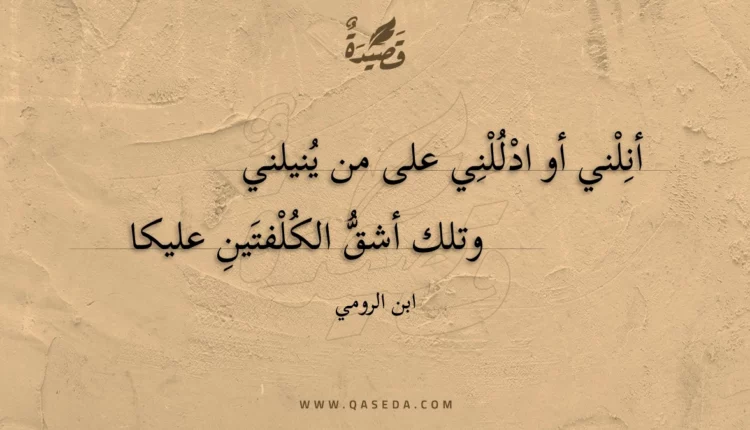 قَصِيدَةٌ
أنِلْني أو ادْلُلْنِي على من يُنيلني
وتلك أشقُّ الكُلْفتَينِ عليكا
ابن الرومي
WWW.QASEDA.COM